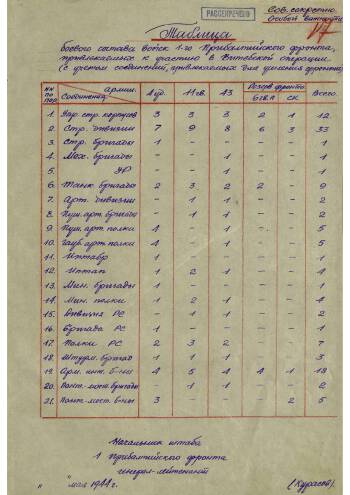 РАССЕКРЕЧЕНО
Сов. секретно
Особой важности
Таблица
боевого состава войск 1-го Прибалтийского фронта,
привлекаемых к участию в Витебской операции
(с учетом соединений, привлекаемых для усиления фронта)
NN по пор. Соединения Армии 4 уд. 11 гв. 43 Резерв фронта 6 гв. А СК Всего
1. Упр. стр. корпусов 3 3 3 2 1 12
2. Стр. дивизии 7 9 8 6 3 33
3. Стр. бригады 1 - - - - 1
4. Мех. бригады - - 1 - - 1
5. УР - - 1 - - 1
6. Танк. бригады 2 3 2 2 - 9
7. Арт. дивизии - 1 1 - - 2
8. Пуш. арт. бригады - 1 1 - - 2
9. Пуш. арт. полки 4 - 1 - - 5
10. Гауб. арт. полки 4 - 1 - - 5
11. Иптабр - - 1 - - 1
12. Иптап 1 2 1 - - 4
13. Мин. бригады 1 - - - - 1
14. Мин. полки 1 2 1 - - 4
15. Дивизия РС - 1 - - - 1
16. Бригада РС 1 - - - - 1
17. Полки РС 2 3 2 - - 7
18. Штурм. бригад 1 1 1 - - 3
19. Арм. инж. б-ны 4 5 4 4 1 18
20. Понт.-мост. бригады - 1 1 - - 2
21. Понт.-мост. б-ны 3 - - - 2 5
Начальник штаба
1 Прибалтийского фронта
генерал-лейтенант
" " мая 1944 г. (Курасов)